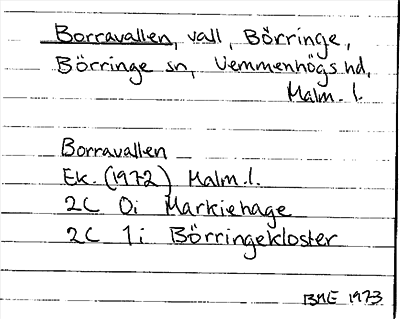 Borravallen, vall, Börringe,
Börringe sn, Vemmenhögs hd,
Malm. l.
Borravallen
Ek. (1972) Malm. l.
2C 0i Markiehage
2C 1i Börringekloster
BME 1973